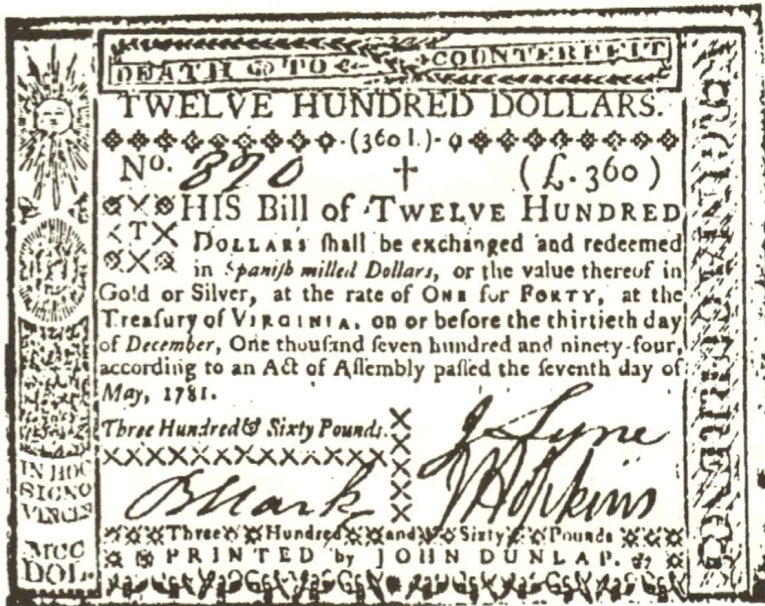 DEATH TO COUNTERFEIT
TWELVE HUNDRED DOLLARS.
(360 l.)
No. 890 (£. 360)
THIS Bill of TWELVE HUNDRED
DOLLARS ſhall be exchanged and redeemed
in Spaniſh milled Dollars, or the value thereof in
Gold or Silver, at the rate of ONE for FORTY, at the
Treaſury of VIRGINIA, on or before the thirtieth day
of December, One thouſand ſeven hundred and ninety-four,
according to an Act of Aſſembly paſſed the ſeventh day of
May, 1781.
Three Hundred & Sixty Pounds.
J Lyne
Hopkins
Three Hundred and Sixty Pounds
PRINTED by JOHN DUNLAP.
IN HOC
SIGNO
VINCES
MCC
DOL.